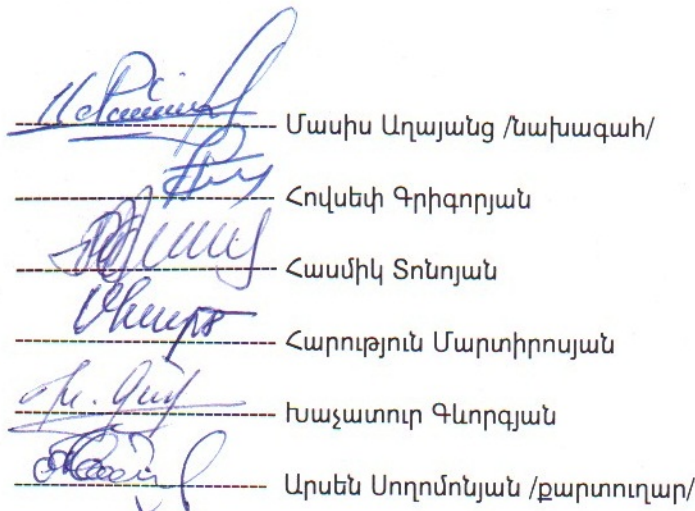 Մասիս Աղայանց /նախագահ/
Հովսեփ Գրիգորյան
Հասմիկ Տոնոյան
Հարություն Մարտիրոսյան
Խաչատուր Գևորգյան
Արսեն Սողոմոնյան /քարտուղար/